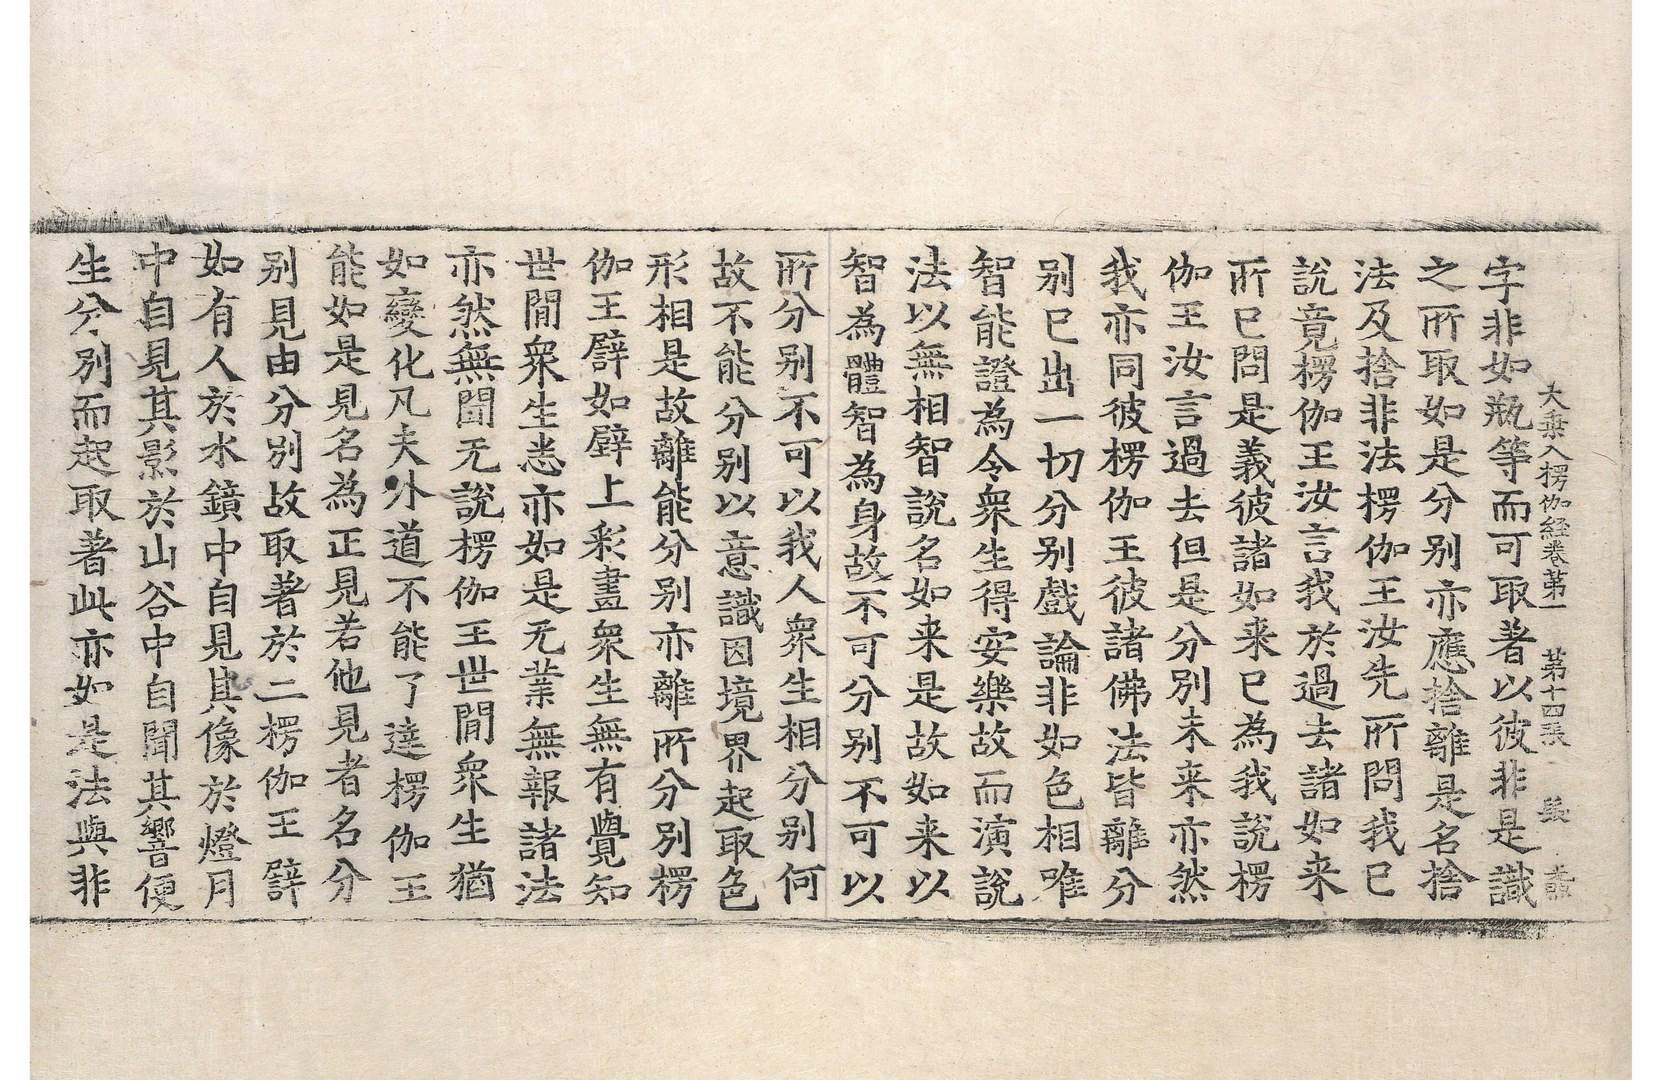 大乗入楞伽経卷第一 第十四張
字非如瓶等而可取著以彼非是識
之所取如是分别亦應捨離是名捨
法及捨非法楞伽王汝先所問我已
說竟楞伽王汝言我於過去諸如来
所已問是義彼諸如来已為我說楞
伽王汝言過去但是分別未来亦然
我亦同彼楞伽王彼諸佛法皆離分
别已出一切分别戲論非如色相唯
智能證為令衆生得安樂故而演說
法以無相智說名如来是故如来以
智為體智為身故不可分别不可以
所分别不可以我人衆生相分别何
故不能分别以意識因境界起取色
形相是故離能分别亦離所分别楞
伽王譬如壁上彩畫衆生無有覺知
世間衆生悉亦如是无業無報諸法
亦然無聞无說楞伽王世間衆生猶
如變化凡夫外道不能了達楞伽王
能如是見名為正見若他見者名分
别見由分别故取著於二楞伽王譬
如有人於水鏡中自見其像於燈月
中自見其影於山谷中自聞其響便
生分别而起取著此亦如是法與非